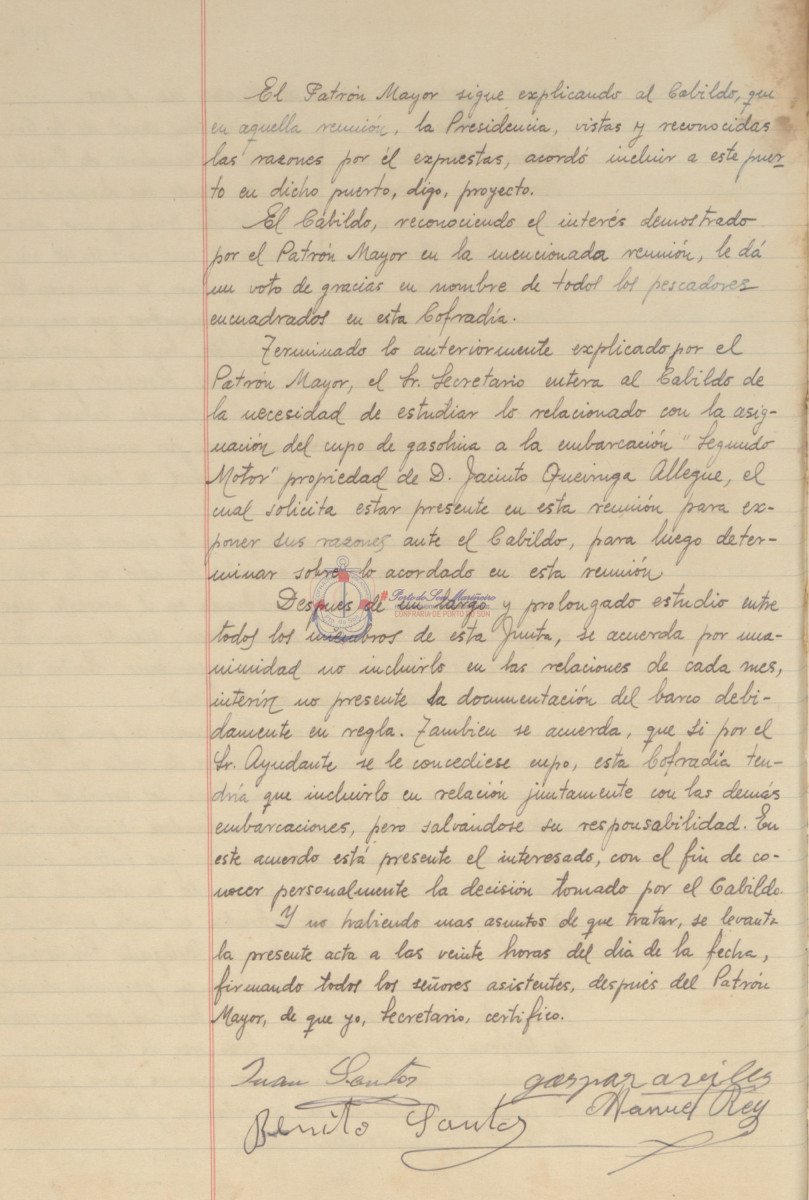 El Patrón Mayor sigue explicando al Cabildo, que
en aquella reunión, la Presidencia, vistas y reconocidas
las razones por él expuestas, acordó incluir a este puer-
to en dicho puerto, digo, proyecto.
El Cabildo, reconociendo el interés demostrado
por el Patrón Mayor en la mencionada reunión, le dá
un voto de gracias en nombre de todos los pescadores
encuadrados en esta Cofradía.
Terminado lo anteriormente explicado por el
Patrón Mayor, el Sr. Secretario entera al Cabildo de
la necesidad de estudiar lo relacionado con la asig-
nación del cupo de gasolina a la embarcación "Segundo
Motor" propiedad de D. Jacinto Queiruga Allegue, el
cual solicita estar presente en esta reunión para ex-
poner sus razones ante el Cabildo, para luego deter-
minar sobre lo acordado en esta reunión
Después de un largo y prolongado estudio entre
todos los miembros de esta Junta, se acuerda por una-
nimidad no incluirlo en las relaciones de cada mes,
interín no presente la documentación del barco debi-
damente en regla. Tambien se acuerda, que si por el
Sr. Ayudante se le concediese cupo, esta Cofradía ten-
dría que incluirlo en relación juntamente con las demás
embarcaciones, pero salvándose su responsabilidad. En
este acuerdo está presente el interesado, con el fin de co-
nocer personalmente la decisión tomado por el Cabildo.
Y no habiendo mas asuntos de que tratar, se levanta
la presente acta a las veinte horas del dia de la fecha,
firmando todos los señores asistentes, después del Patrón
Mayor, de que yo, Secretario, certifico.
Juan Santos gaspar aviles
Manuel Rey
Benito Santos
Porto do Son Mariñeiro
CONFRARÍA DE PORTO DO SON